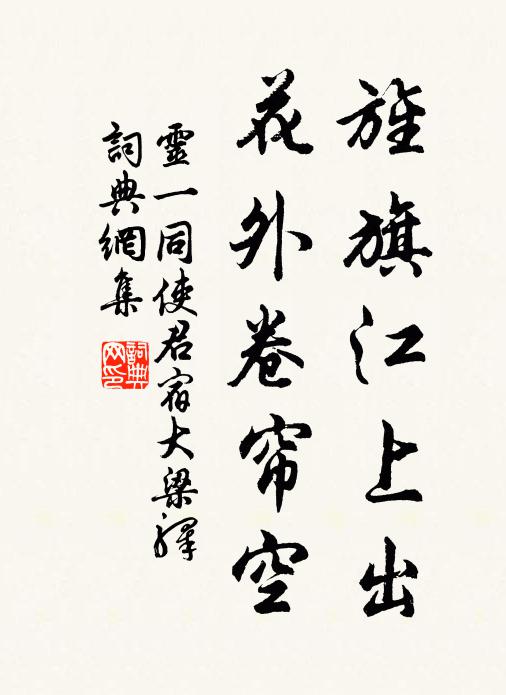 旌旗江上出
花外卷帘空
靈一同使君宿大梁驛
詞典網集
詞典網印